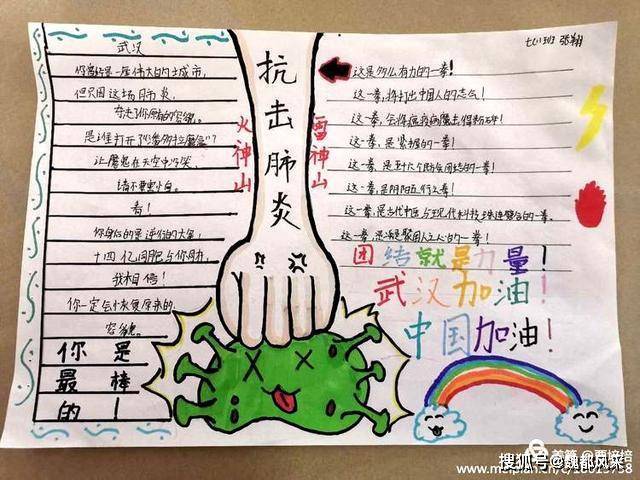 武汉
你曾经是一座伟大的城市，
但只因这场肺炎，
夺走了你原有的容貌。
是谁打开了“潘多拉魔盒”？
让魔鬼在天空中污笑，
请不要害怕。
看！
你身后的是逆行的大军，
十四亿同胞与你同力，
我相信！
你一定会恢复原来的
容貌。
你是
最棒
的！
抗击肺炎
火神山
雷神山
七(1)班 张翔
这是多么有力的一拳！
这一拳，将打出中国人的志气！
这一拳，会将瘟疫病魔击得粉碎！
这一拳，是紧握的一拳！
这一拳，是五十六个民族团结的一拳！
这一拳，是阴阳五行之拳！
这一拳，是古代中医与现代科技珠连璧合的一拳。
这一拳，是凝聚国人之心的一拳！
团结就是力量！
武汉加油！
中国加油！
搜狐号@魏都风采